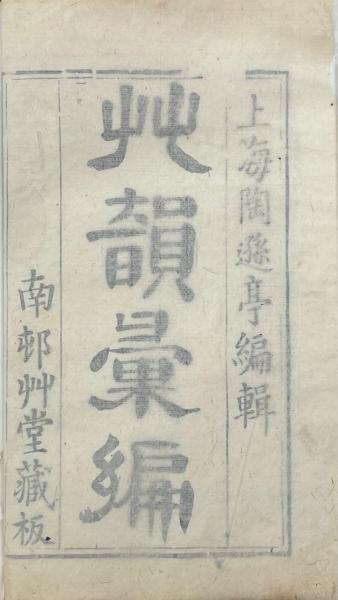 上海陶遜亭編輯
艸韻彙編
南邨艸堂藏板